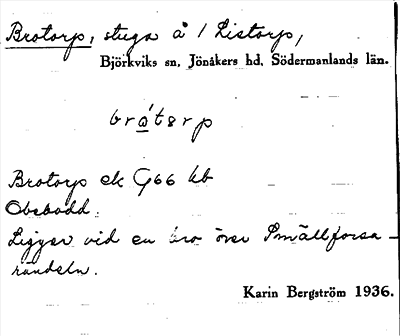 Brotorp, stuga å 1 Listorp,
Björkviks sn, Jönåkers hd, Södermanlands län.
Brotorp ek G66 hb
Obebodd.
Ligger vid en bro över Smällforsa-
rändeln.
Karin Bergström 1936.